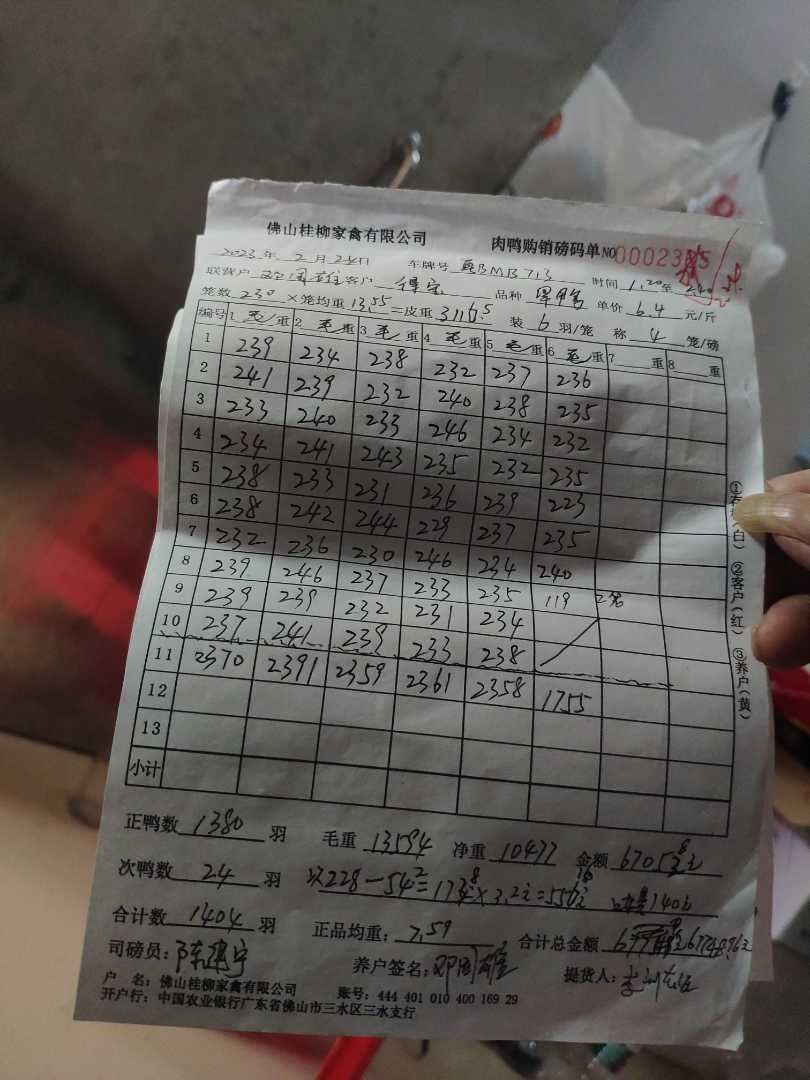 佛山桂柳家禽有限公司 肉鸭购销磅码单 NO 00023
2023年 2月24日 车牌号 BMB713 时间 1.20至 2.40
联营户 邓国雄 客户 品种 单价 6.4 元/斤
笼数 230 ×笼均重 13.55 =皮重 3116.5 装 6 羽/笼 称 4 笼/磅
编号 1 毛/重 2 毛重 3 毛重 4 毛重 5 毛重 6 毛重 7 重 8 重
1 239 234 238 232 237 236
2 241 239 232 240 238 235
3 233 240 233 246 234 232
4 234 241 243 235 232 235
5 238 233 231 236 239 223
6 238 242 244 229 237 235
7 232 236 230 246 234 240
8 239 246 237 233 235 119 2笼
9 239 239 232 231 234
10 237 241 239 233 238
11 2370 2391 2359 2361 2358 1755
12
13
小计
①存根(白) ②客户(红) ③养户(黄)
正鸭数 1380 羽 毛重 13594 净重 10477 金额 67052.8元
次鸭数 24 羽 以228-54.2=173.8×3.2元=556.16元 140元
合计数 1404 羽 正品均重: 7.59 合计总金额 67748.96元
司磅员: 陈建宇 养户签名: 邓国雄 提货人:
户 名: 佛山桂柳家禽有限公司 账号: 444 401 010 400 169 29
开户行: 中国农业银行广东省佛山市三水区三水支行